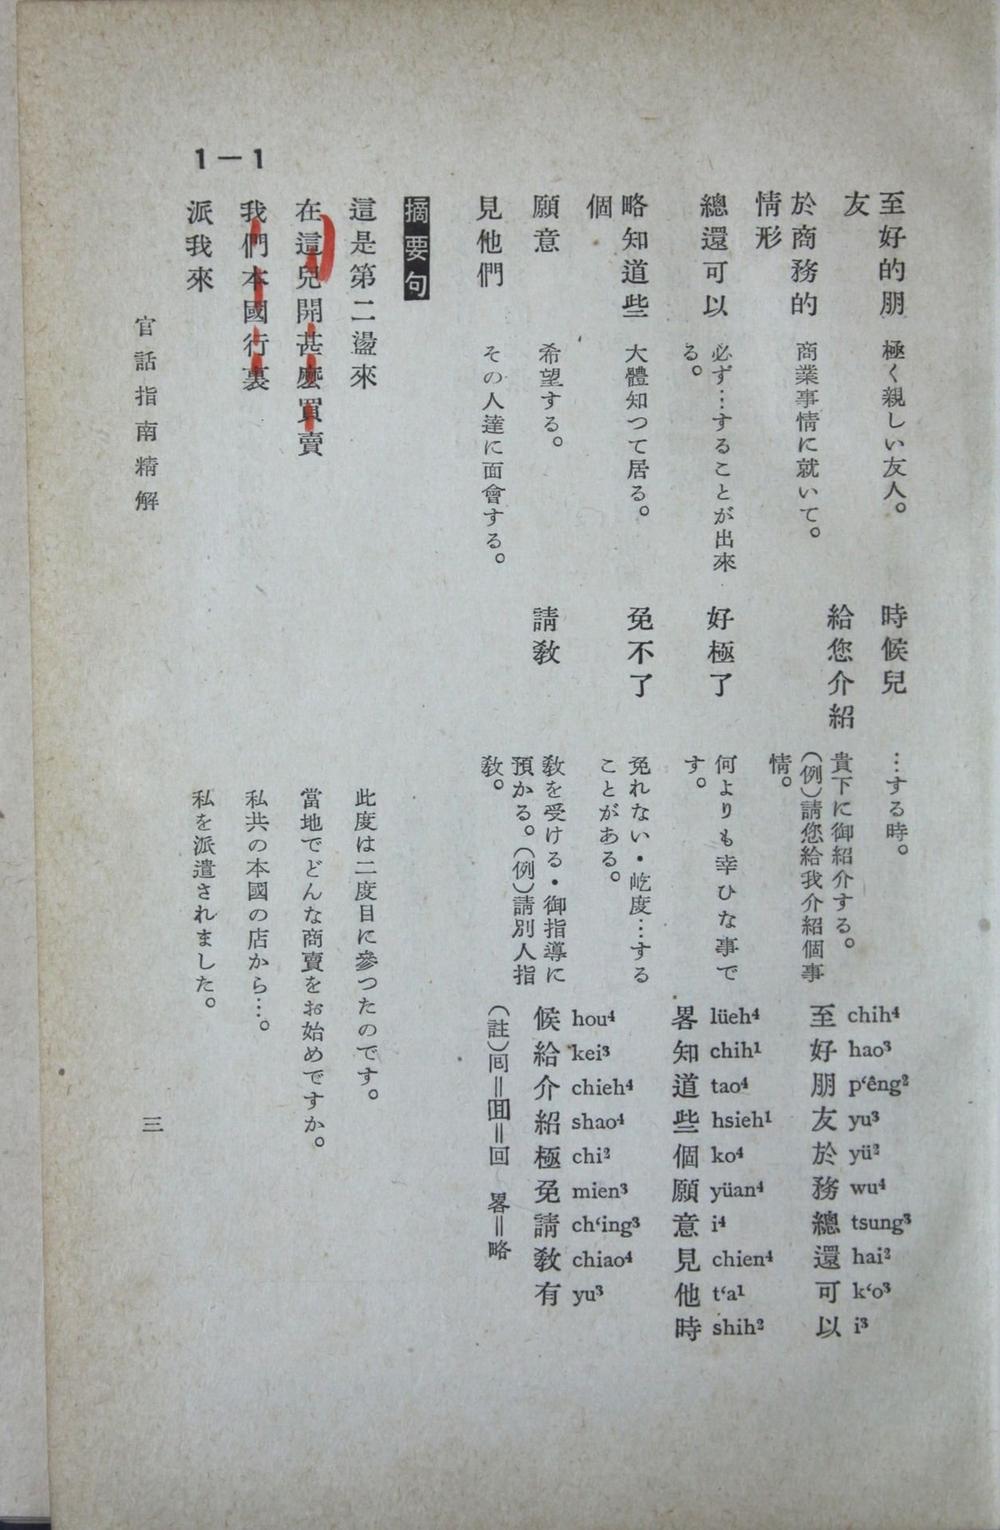 至好的朋
友
極く親しい友人。
於商務的
情形
商業事情に就いて。
總還可以
必ず…することが出來
る。
略知道些
個
大體知つて居る。
願意
希望する。
見他們
その人達に面會する。
時候兒
…する時。
給您介紹
貴下に御紹介する。
(例)請您給我介紹個事
情。
好極了
何よりも幸ひな事で
す。
免不了
免れない・屹度…する
ことがある。
請敎
敎を受ける・御指導に
預かる。(例)請別人指
敎。
至 chih⁴
好 hao³
朋 p‘êng²
友 yu³
於 yü²
務 wu⁴
總 tsung³
還 hai²
可 k‘o³
以 i³
畧 lüeh⁴
知 chih¹
道 tao⁴
些 hsieh¹
個 ko⁴
願 yüan⁴
意 i⁴
見 chien⁴
他 t‘a¹
時 shih²
候 hou⁴
給 kei³
介 chieh⁴
紹 shao⁴
極 chi²
免 mien³
請 ch‘ing³
敎 chiao⁴
有 yu³
(註)囘＝囬＝回 畧＝略
摘要句
這是第二盪來
此度は二度目に參つたのです。
在這兒開甚麼買賣
當地でどんな商賣をお始めですか。
我們本國行裏
私共の本國の店から…。
派我來
私を派遣されました。
1－1
官話指南精解
三